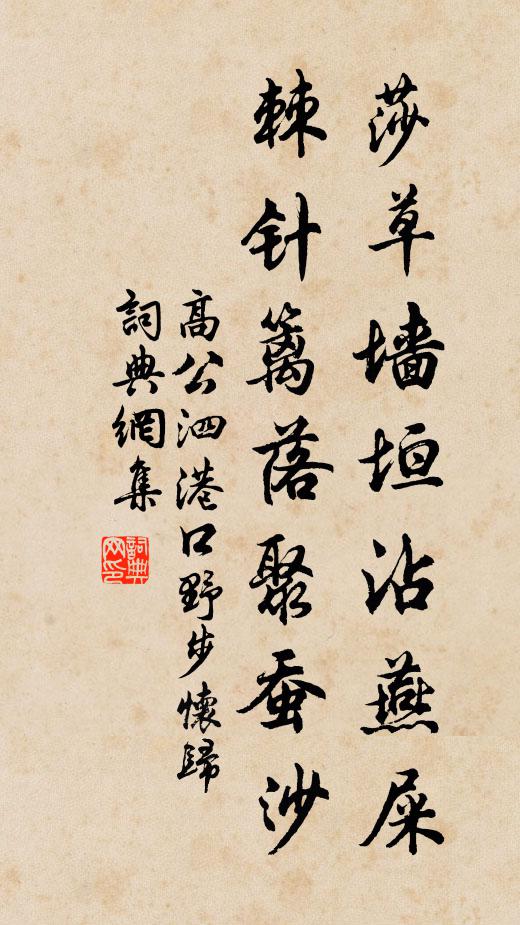 莎草墙垣沾燕屎
棘针篱落聚蚕沙
高公泗港口野步懷歸
詞典網集
詞典网印